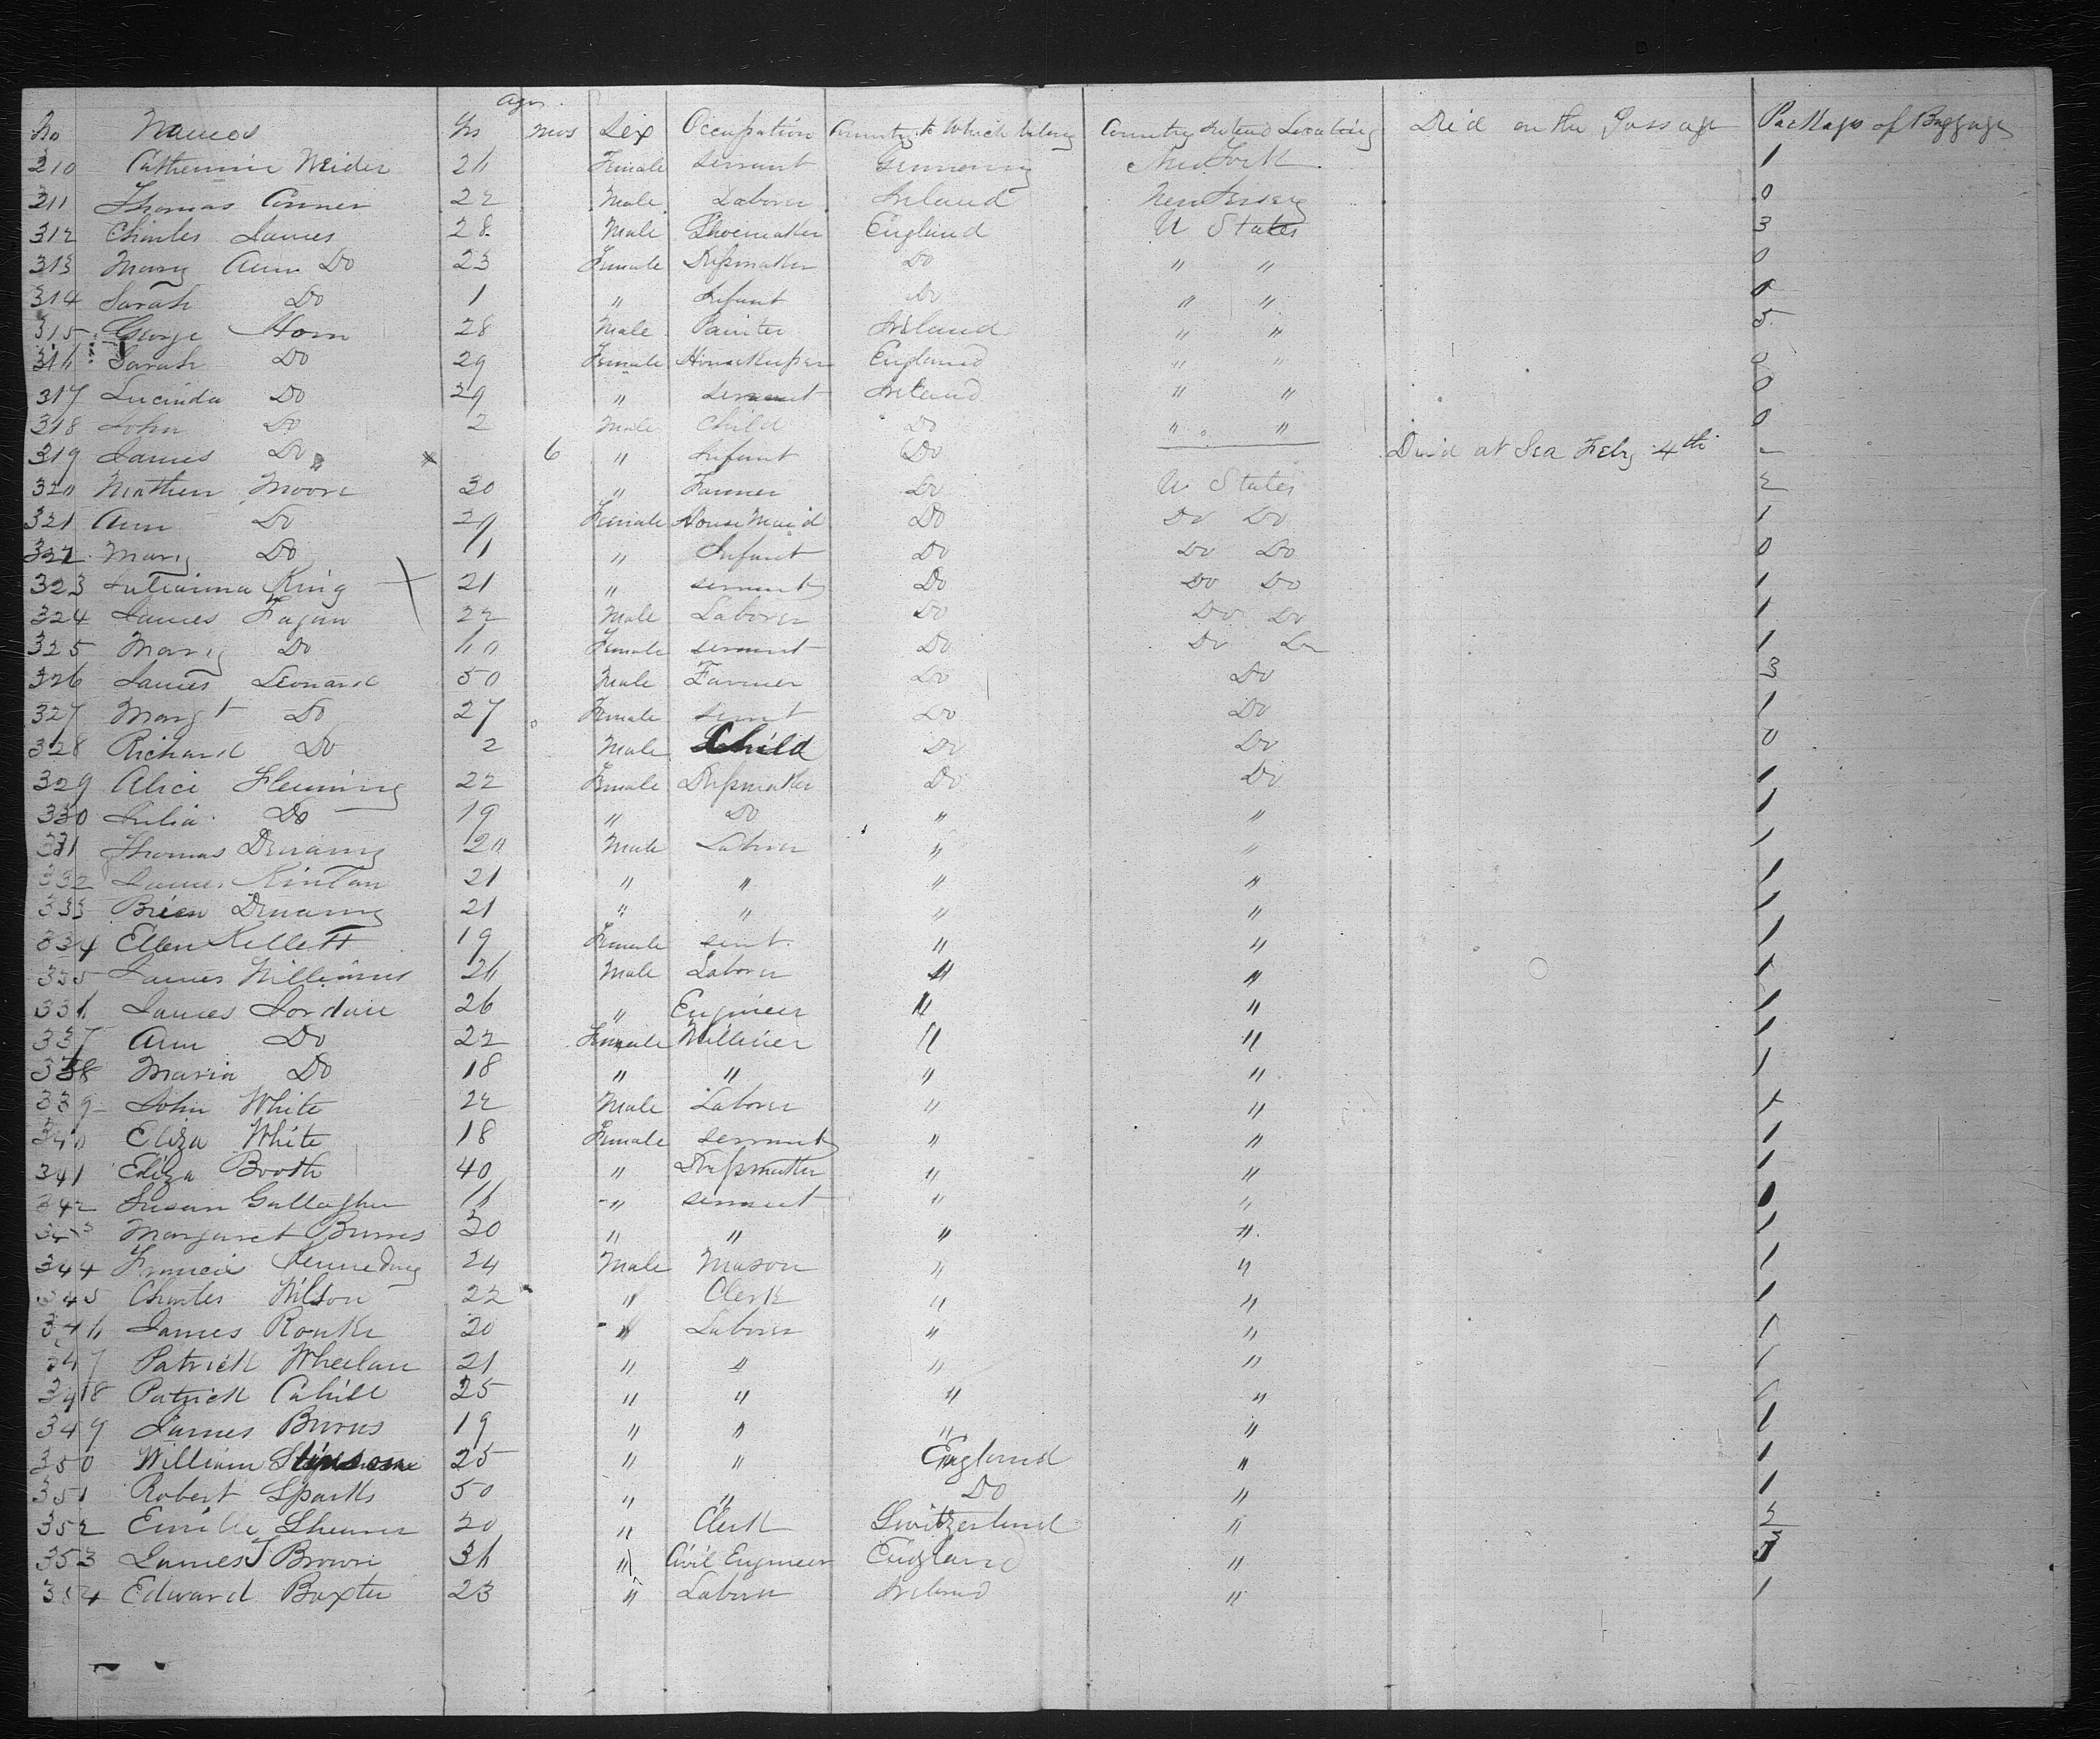 Ages
No Names Yrs Mos Sex Occupation Country to Which belong Country intend Locating Died on the Passage Packages of Baggage
210 Catherine Weider 26 Female servant Germany New York 1
211 Thomas Conner 22 Male Laborer Ireland New Jersey 0
312 Charles James 28 Male Shoemaker England U States 3
313 Mary Ann Do 23 Female Dressmaker Do " " 0
314 Sarah Do 1 " Infant Do " " 0
315 George Horn 28 Male Painter Ireland " " 5
316 Sarah Do 29 Female Housekeeper England " " 0
317 Lucinda Do 29 " servant Ireland " " 0
318 John Do 2 Male Child Do " " 0
319 James Do 6 " Infant Do Died at Sea Feby 4th -
320 Mathew Moore 30 " Farmer Do U States 2
321 Ann Do 29 Female House Maid Do Do Do 1
322 Mary Do 1 " Infant Do Do Do 0
323 Julianna King 21 " servant Do Do Do 1
324 James Fagan 22 Male Laborer Do Do Do 1
325 Mary Do Female servant Do Do Do 1
326 James Leonard 50 Male Farmer Do Do 3
327 Margt Do 27 Female servt Do Do 1
328 Richard Do 2 Male Child Do Do 0
329 Alice Fleming 22 Female Dressmaker Do Do 1
330 Julia Do 19 " Do " " 1
331 Thomas 20 Male Laborer " " 1
332 James Kintan 21 " " " " 1
333 Brien 21 " " " " 1
334 Ellen Kellett 19 Female servt. " " 1
335 James Williams 26 Male Laborer " " 1
336 James Jordan 26 " Engineer " " 1
337 Ann Do 22 Female Milliner " " 1
338 Maria Do 18 " " " " 1
339 John White 22 Male Laborer " " 1
340 Eliza White 18 Female servant " " 1
341 Eliza Booth 40 " Dressmaker " " 1
342 Susan Gallagher 16 " servant " "
343 Margaret Burns 30 " " " " 1
344 Francis Kennedy 24 Male Mason " " 1
345 Charles Wilson 22 " Clerk " " 1
346 James Rourke 20 " Laborer " " 1
347 Patrick Wheelan 21 " " " " 1
348 Patrick Cahill 25 " " " " 1
349 James Burns 19 " " " " 1
350 William 25 " " England " 1
351 Robert Sparks 50 " " Do " 1
352 Emille 20 " Clerk Switzerland " 2
353 James T Brown 36 " Civil Engineer England "
354 Edward Baxter 23 " Laborer Ireland " 1